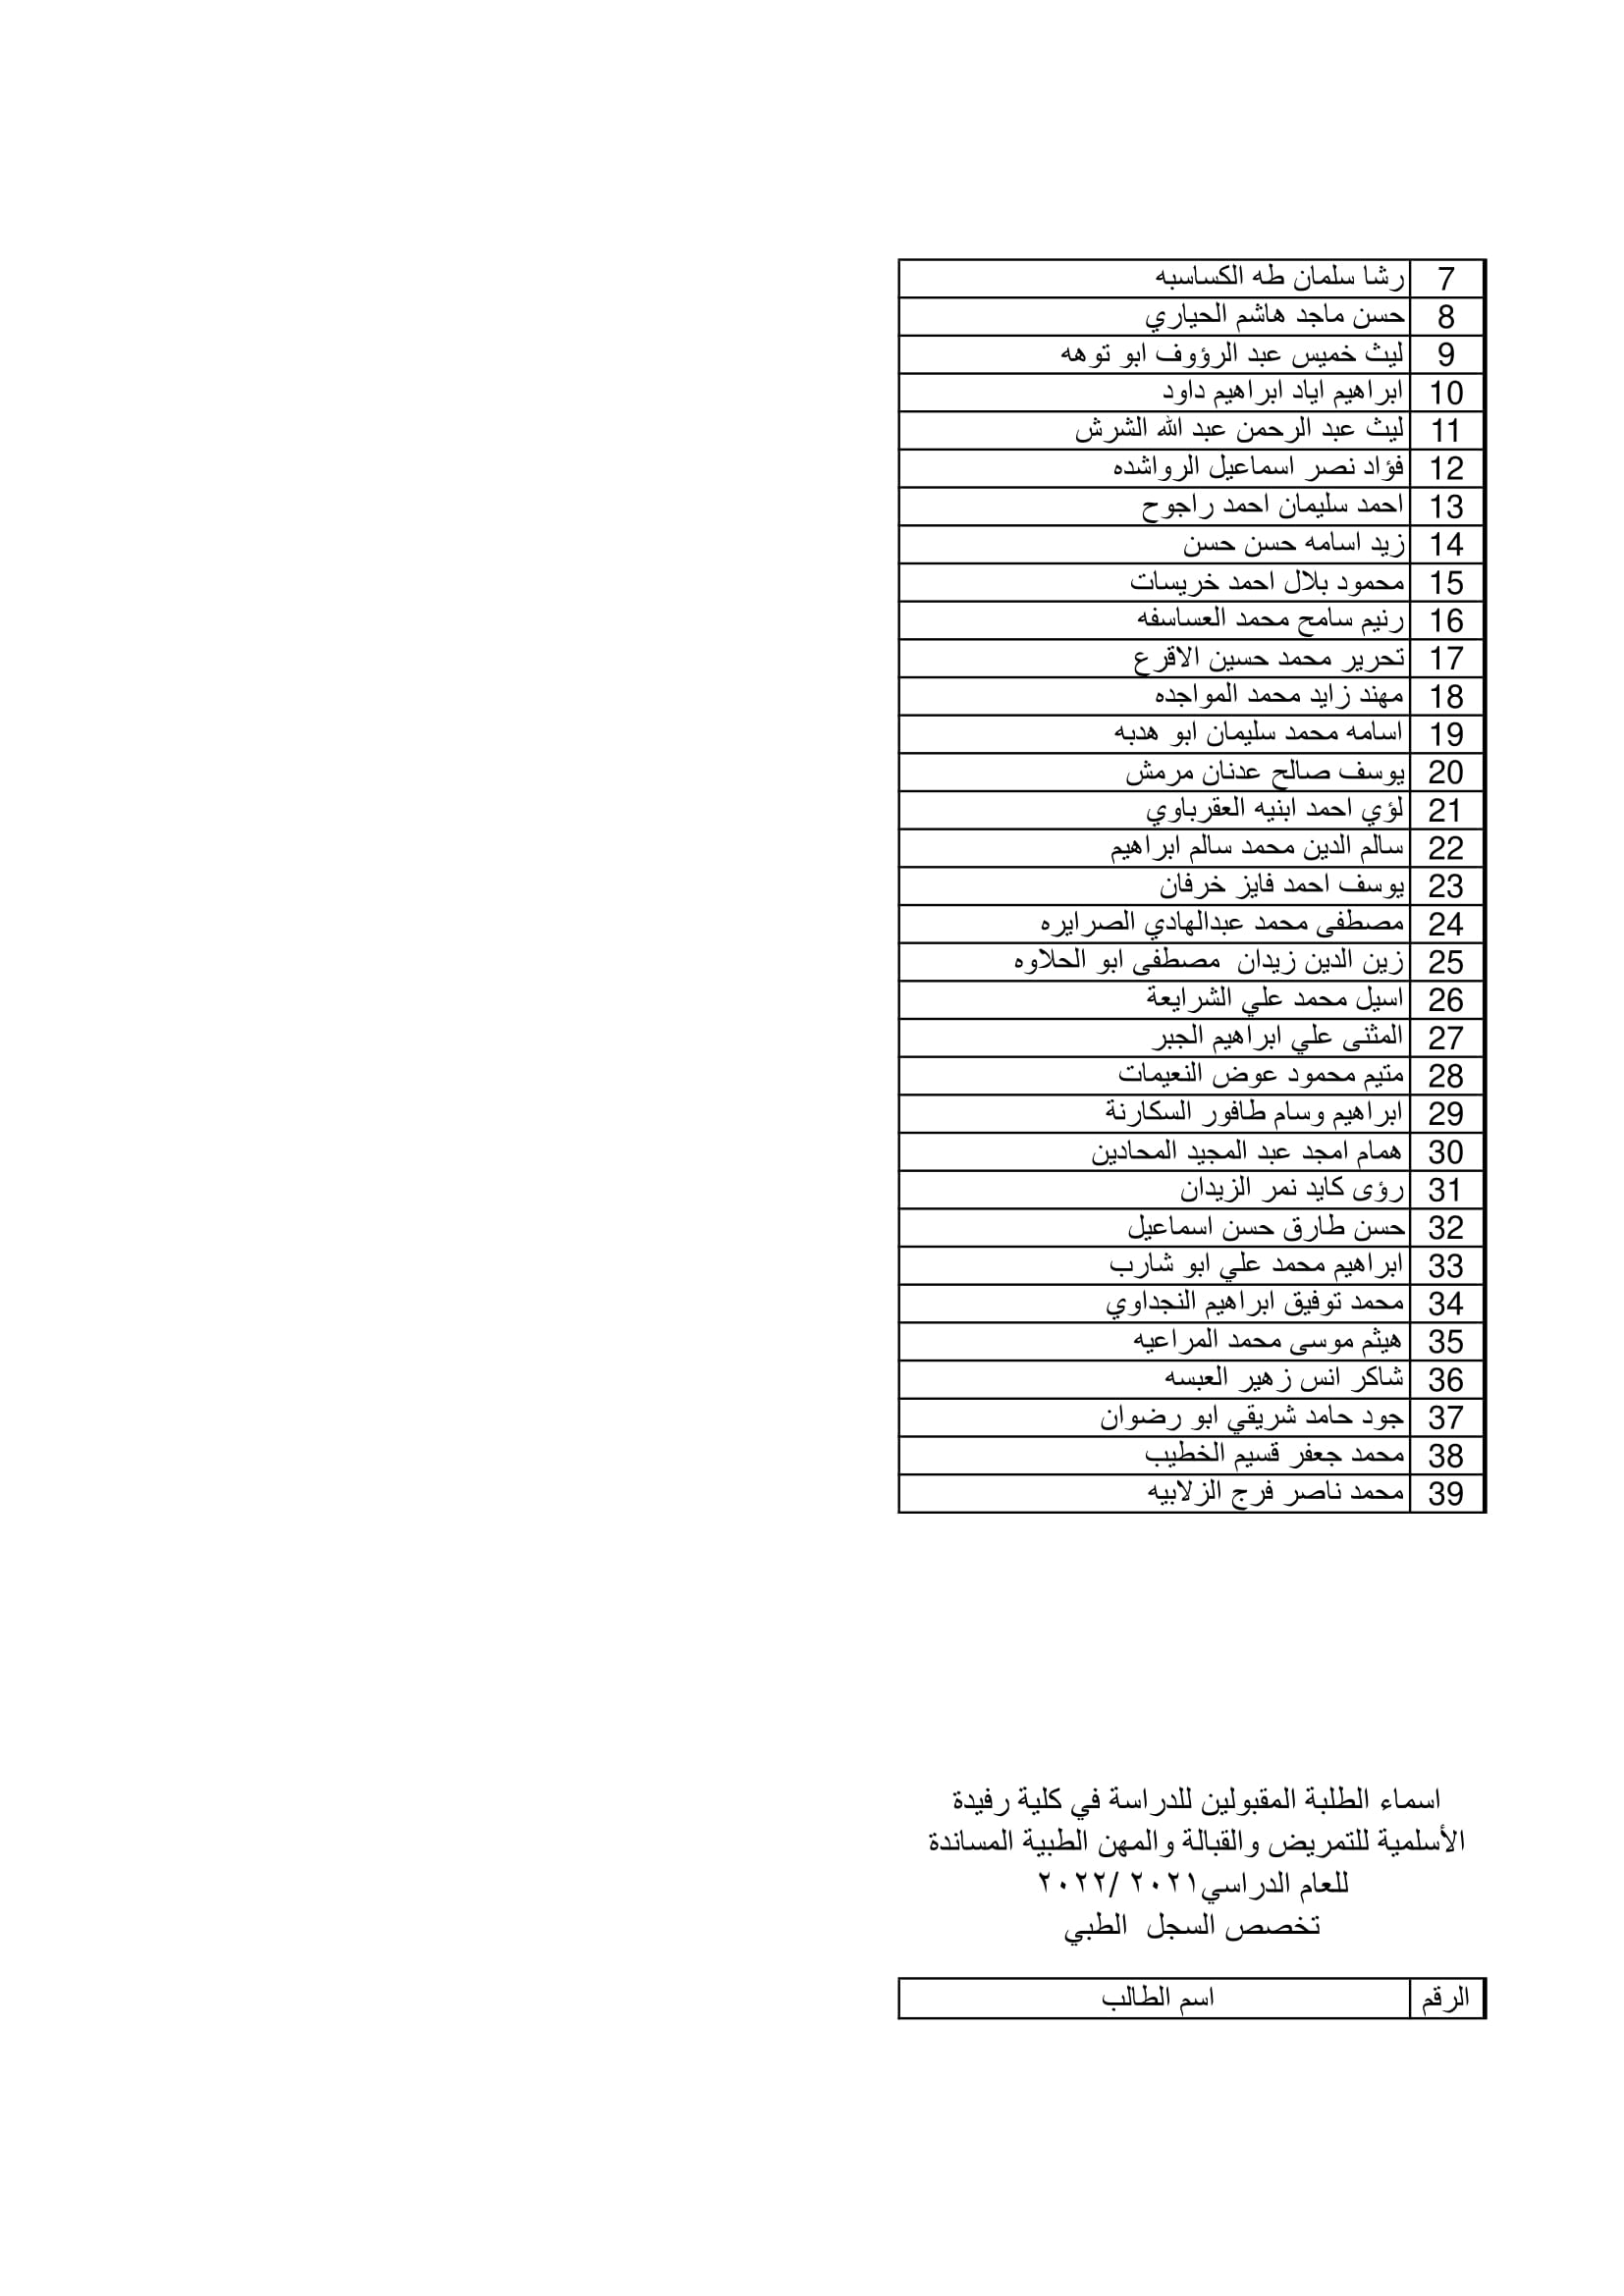 7 رشا سلمان طه الكساسبه
8 حسن ماجد هاشم الحياري
9 ليث خميس عبد الرؤوف ابو توهه
10 ابراهيم اياد ابراهيم داود
11 ليث عبد الرحمن عبد الله الشرش
12 فؤاد نصر اسماعيل الرواشده
13 احمد سليمان احمد راجوح
14 زيد اسامه حسن حسن
15 محمود بلال احمد خريسات
16 رنيم سامح محمد العساسفه
17 تحرير محمد حسين الاقرع
18 مهند زايد محمد المواجده
19 اسامه محمد سليمان ابو هدبه
20 يوسف صالح عدنان مرمش
21 لؤي احمد ابنيه العقرباوي
22 سالم الدين محمد سالم ابراهيم
23 يوسف احمد فايز خرفان
24 مصطفى محمد عبدالهادي الصرايره
25 زين الدين زيدان مصطفى ابو الحلاوه
26 اسيل محمد علي الشرايعة
27 المثنى علي ابراهيم الجبر
28 متيم محمود عوض النعيمات
29 ابراهيم وسام طافور السكارنة
30 همام امجد عبد المجيد المحادين
31 رؤى كايد نمر الزيدان
32 حسن طارق حسن اسماعيل
33 ابراهيم محمد علي ابو شارب
34 محمد توفيق ابراهيم النجداوي
35 هيثم موسى محمد المراعيه
36 شاكر انس زهير العبسه
37 جود حامد شريقي ابو رضوان
38 محمد جعفر قسيم الخطيب
39 محمد ناصر فرج الزلابيه
اسماء الطلبة المقبولين للدراسة في كلية رفيدة
الأسلمية للتمريض والقبالة والمهن الطبية المساندة
للعام الدراسي٢٠٢١ /٢٠٢٢
تخصص السجل الطبي
الرقم اسم الطالب